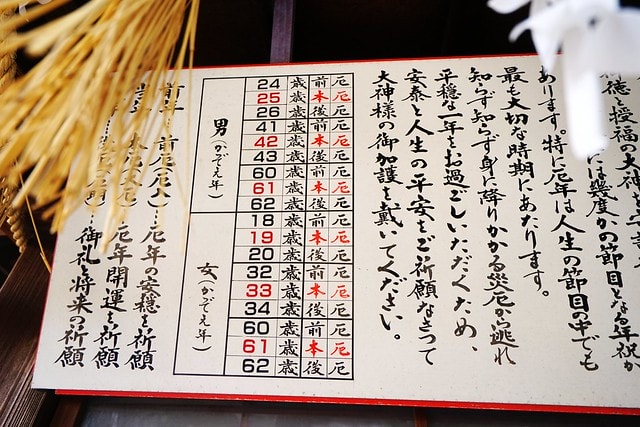 徳と授福の大神と
は幾度かの節目となる年祝か
あります。特に厄年は人生の節目の中でも
最も大切な時期にあたります。
知らず知らず身に降りかかる災厄から逃れ
平穏な一年をお過ごしいただくため、
安泰と人生の平安をご祈願なさって
大神様の御加護を戴いてください。
男(かぞえ年)
24歳前厄
25歳本厄
26歳後厄
41歳前厄
42歳本厄
43歳後厄
60歳前厄
61歳本厄
62歳後厄
女(かぞえ年)
18歳前厄
19歳本厄
20歳後厄
32歳前厄
33歳本厄
34歳後厄
60歳前厄
61歳本厄
62歳後厄
前年…前厄(厄入)…厄年の安穏を祈願
厄年開運を祈願
御礼と将来の祈願